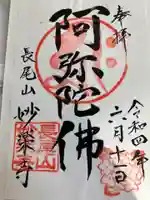 奉拝
令和四年
六月十二日
阿弥陀佛
長尾山
妙楽寺